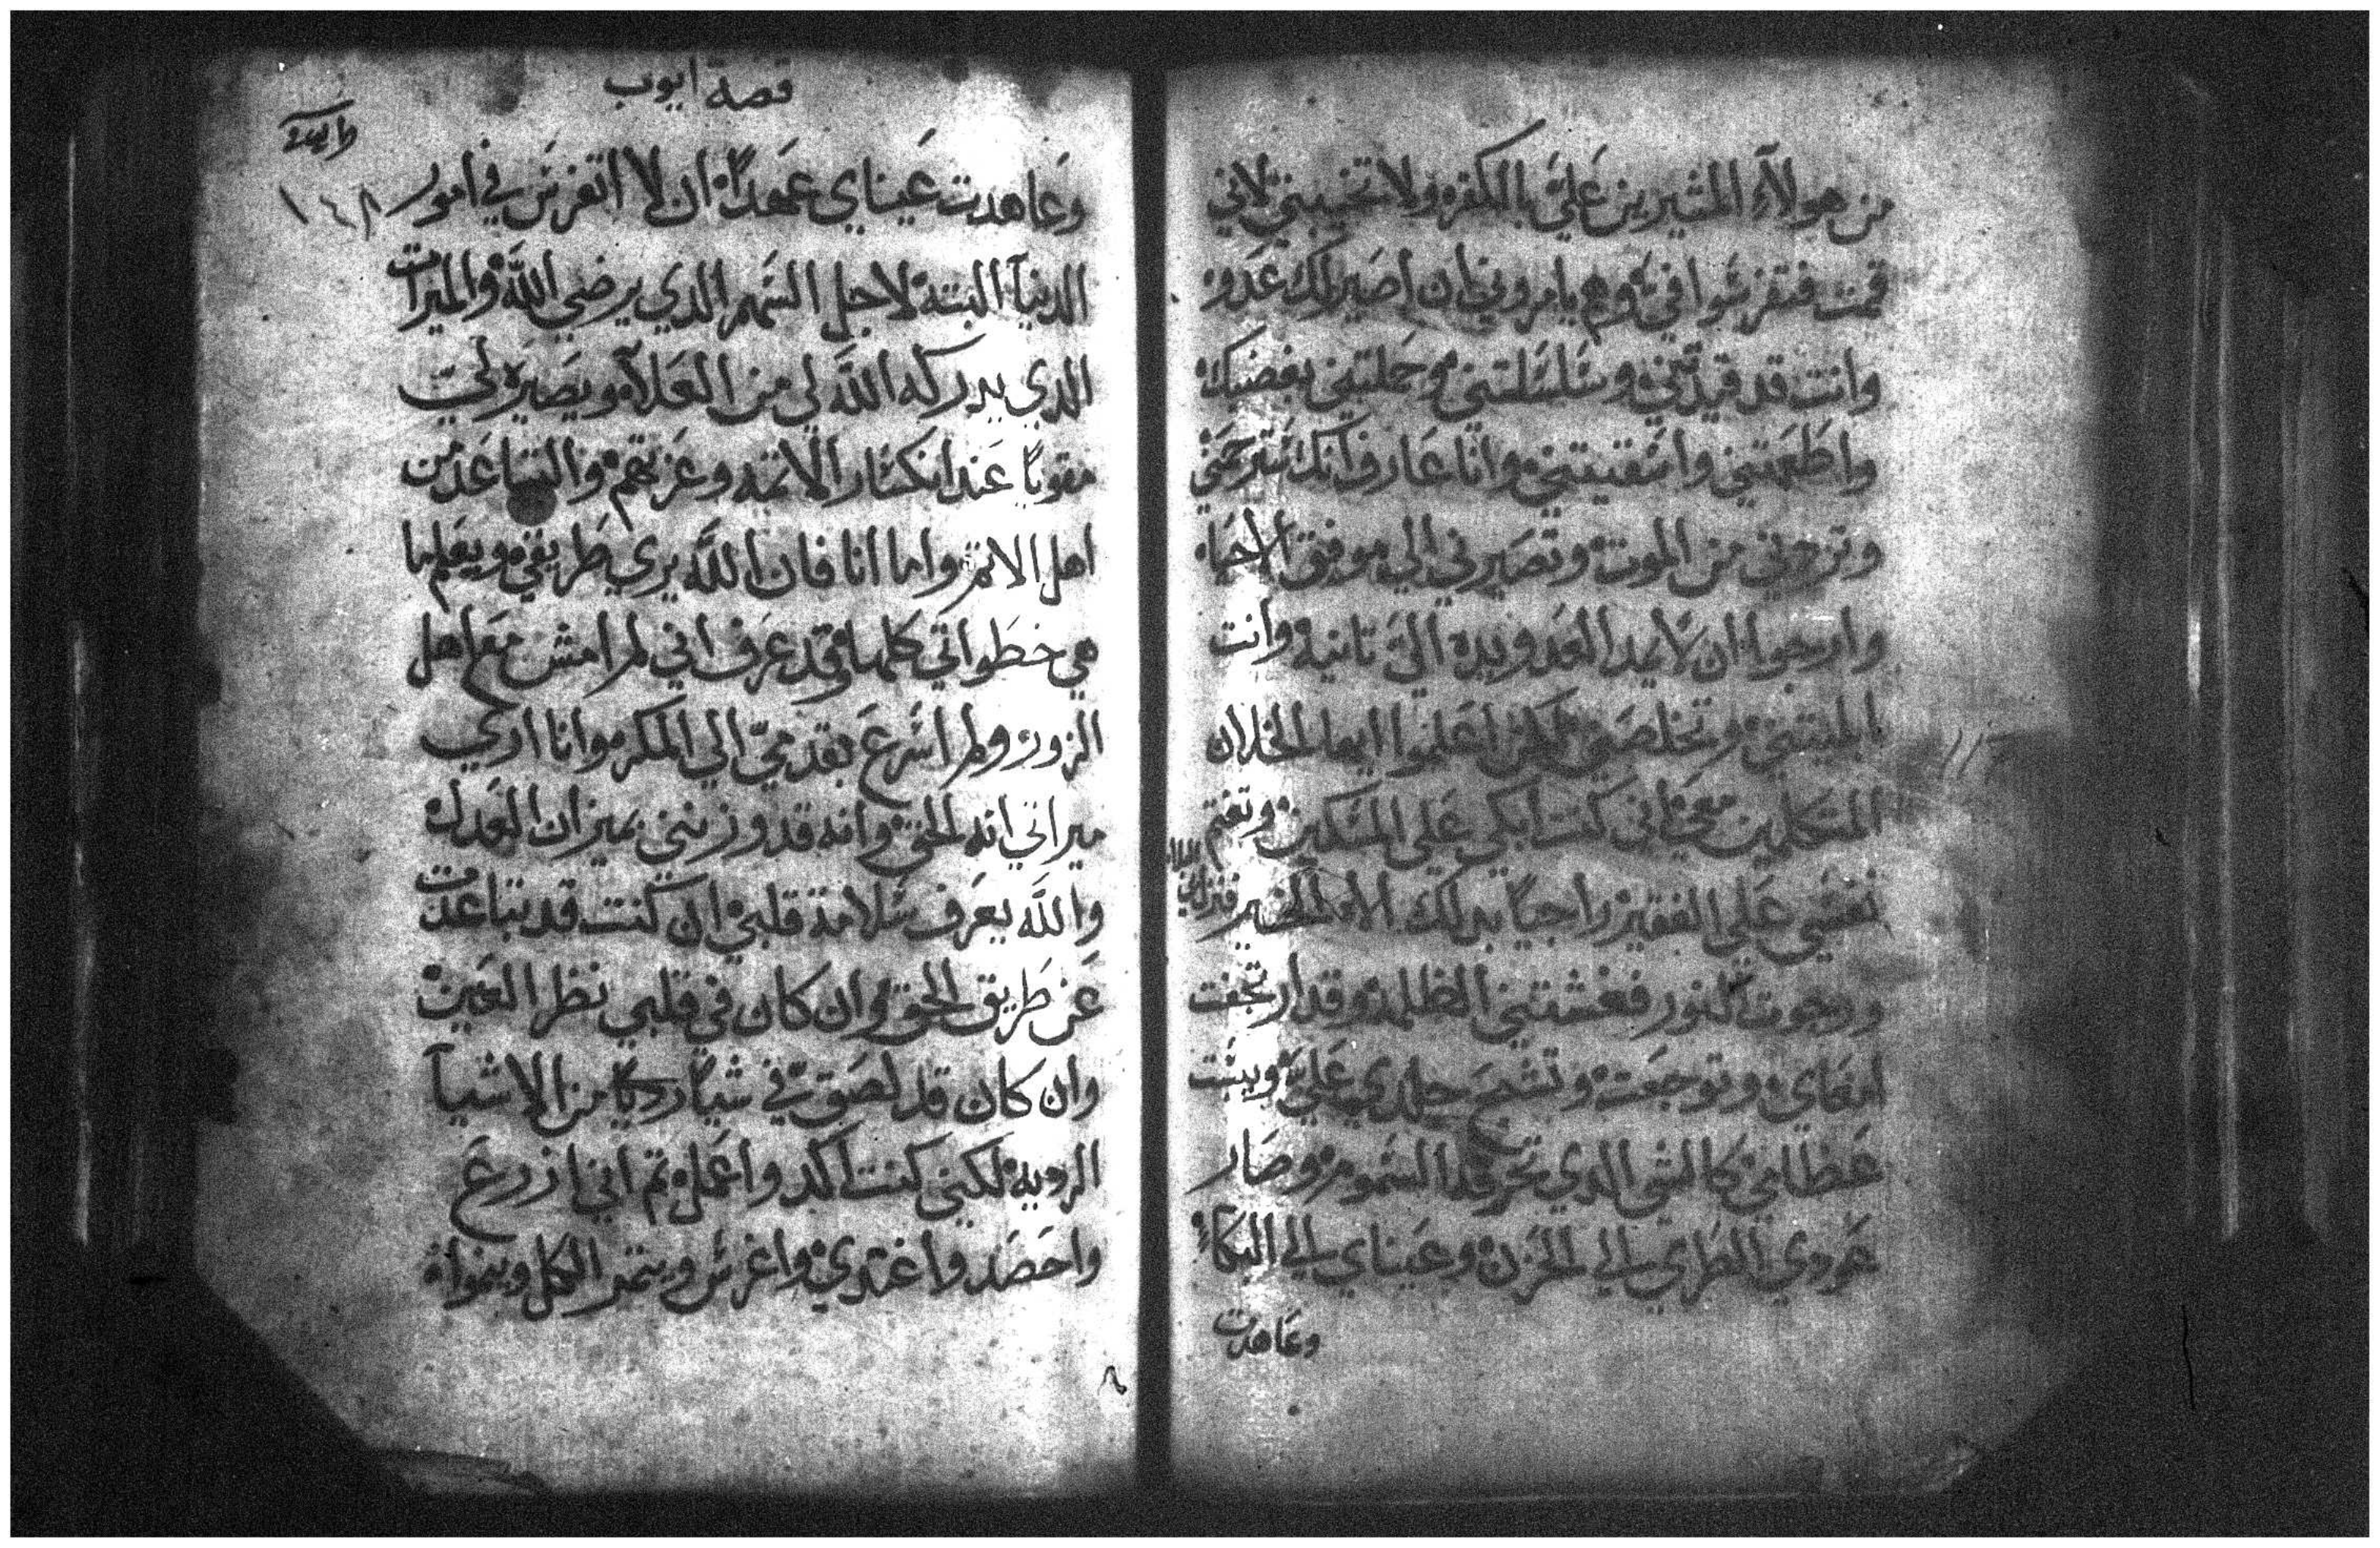 من هولآء المشيرين عَليَّ بالكفر ولا تخيبني لاني
قمت فتفرسَوا فيَّ وهم يامروني ان اصَير لك عَدو
وانت قد قيدتني وسَلسَلتني وحَملتني بغضبك
واطَعمتني واسَقيتني وانا عَارف انك سَترحمَني
وتردني من الموت وتصَيرني الي موقف الاحيَاء
وارجوا ان لا يمد العَدو يده اليَّ تانية وانت
المتكلمين معَي اني كنت ابكي عَلي المسَكين وتغتم
نفسَي عَلي الفقير راجيًا بدلك الامر الخير فنزل بي البلاء
ورجوت النور فغشتني الظلمة وقد ارتجفت
امعَاي وتوجعَت وتشَنج جلدي عَليَّ ويبسَت
عَظامي كالشي الدي تحرقه السَموم وصَار
عَودي الطَرايي الي الحَزن وعَيناي الي البكاء
وعَاهدت
قصة ايوب
١٤٨
وَعَاهدت عَيناي عَهدًا ان لا اتفرسَ في امور
الدنيآ البتة لاجل السَهم الدي يرضي اللَّه والميرات
الدي يدركه اللَّه لي من العَلآ ويصَيره لي
مقويًا عَند انكسَار الاتمه وعَزيتهم والتباعَد من
اهل الاتم واما انا فان اللَّه يري طَريقي ويعَلم ما
هي خطَواتي كلها وقد عَرف اني لم امش معَ اهل
الزور ولم اسَرعَ بقدميّ الي المكر وانا اري
ميراتي انه الحق وانه قد وزنني بميزان العَدل
واللَّه يعَرف سَلامة قلبي ان كنت قد تباعَدت
عَن طَريق الحق وان كان في قلبي نظر العَين
وان كان قد لصَق فيّ شيًا رديًا من الاشيآ
الرديه لكني كنت اكد واعَمل تم اني ازرعَ
واحَصَد واغتدي واغرسَ ويتمر الكل وينموا